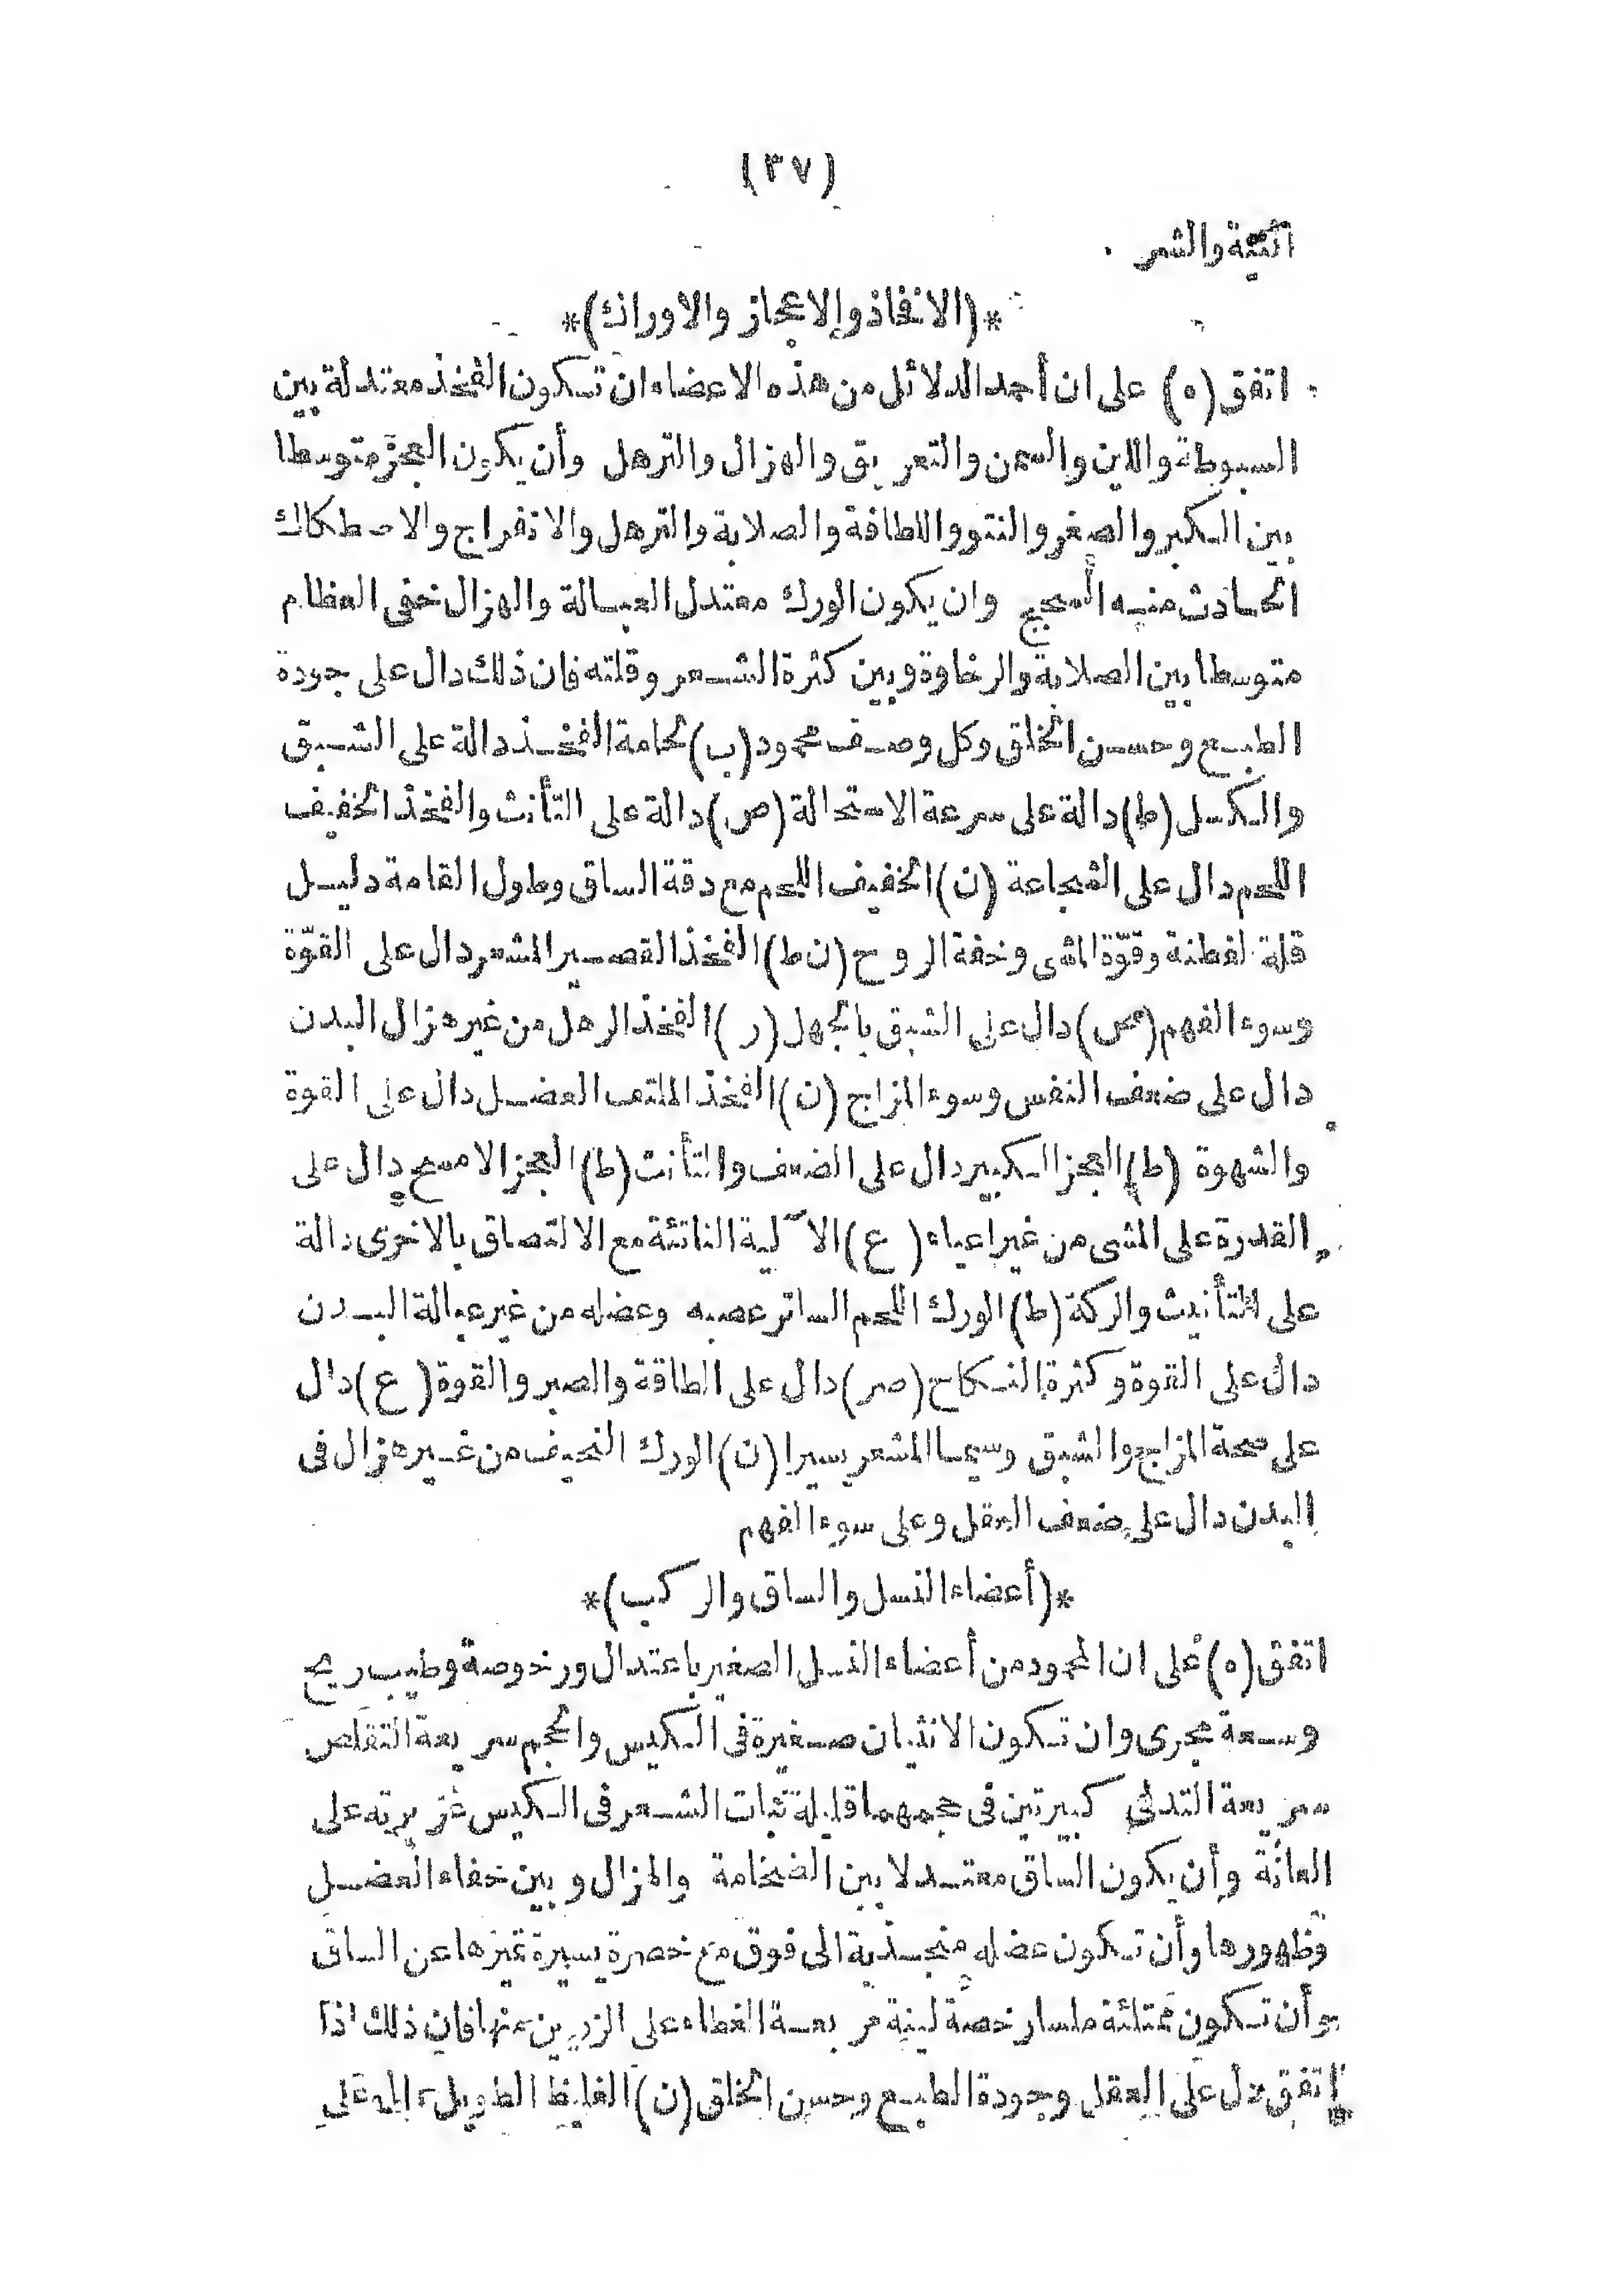 (٣٧)
والشر
*(الافخاذ والاعجاز والاوراك)*
اتفق (ه) على ان أحد الدلائل من هذه الاعضاء ان تكون الفخذ معتدلة بين
السبوطة واللين والسمن والتعريق والهزال والترهل وأن يكون العجز متوسطا
بين الكبر والصغر والنتو واللطافة والصلابة والترهل والانفراج والاصطكاك
الحادث منه السحج وان يكون الورك معتدل العبالة والهزال خفى العظام
متوسطا بين الصلابة والرخاوة وبين كثرة الشعر وقلته فان ذلك دال على جودة
الطبع وحسن الخلق وكل وصف محمود (ب) لحامة الفخذ دالة على الشبق
والكسل (ط) دالة على سرعة الاستحالة (ص) دالة على التأنث والفخذ الخفيف
اللحم دال على الشجاعة (ن) الخفيف اللحم مع دقة الساق وطول القامة دليل
قلة لفطنة وقوّة المشى وخفة الروح (ن ط) الفخذ القصير المشعر دال على القوّة
وسوء الفهم (ص) دال على الشبق بالجهل (ر) الفخذ الرهل من غير هزال البدن
دال على ضعف النفس وسوء المزاج (ن) الفخذ الملتف العضل دال على القوة
والشهوة (ط) العجز الكبير دال على الضعف والتأنث (ط) العجز الامسح دال على
القدرة على المشى من غير اعياء (ع) الآلية الناتئة مع الالتصاق بالاخرى دالة
على التأنيث والركة (ط) الورك اللحم الساتر عصبه وعضله من غير عبالة البدن
دال على القوة وكثرة النكاح (صر) دال على الطاقة والصبر والقوة (ع) دال
على صحة المزاج والشبق وسيما المشعر يسيرا (ن) الورك النحيف من غير هزال فى
البدن دال على ضعف العقل وعلى سوء الفهم
*(أعضاء النسل والساق والركب)*
اتفق (ه) على ان المحمود من أعضاء النسل الصغير باعتدال ورخوصة وطيب ريح
وسعة مجرى وان تكون الانثيان صغيرة فى الكيس والحجم سريعة التقلص
سريعة التدلى كبيرتين فى حجمهما قليلة نبات الشعر فى الكيس غزيرته على
العانة وأن يكون الساق معتدلا بين الضخامة والهزال وبين خفاء العضل
وظهورها وأن تكون عضله منجذبة الى فوق مع خصرة يسيرة تميزها عن الساق
وأن تكون ممتلئة ملسا رخصة لينة مربعة الغطاء على الزربين عنها فان ذلك اذا
اتفق دل على العقل وجودة الطبع وحسن الخلق (ن) الغليظ الطويل على